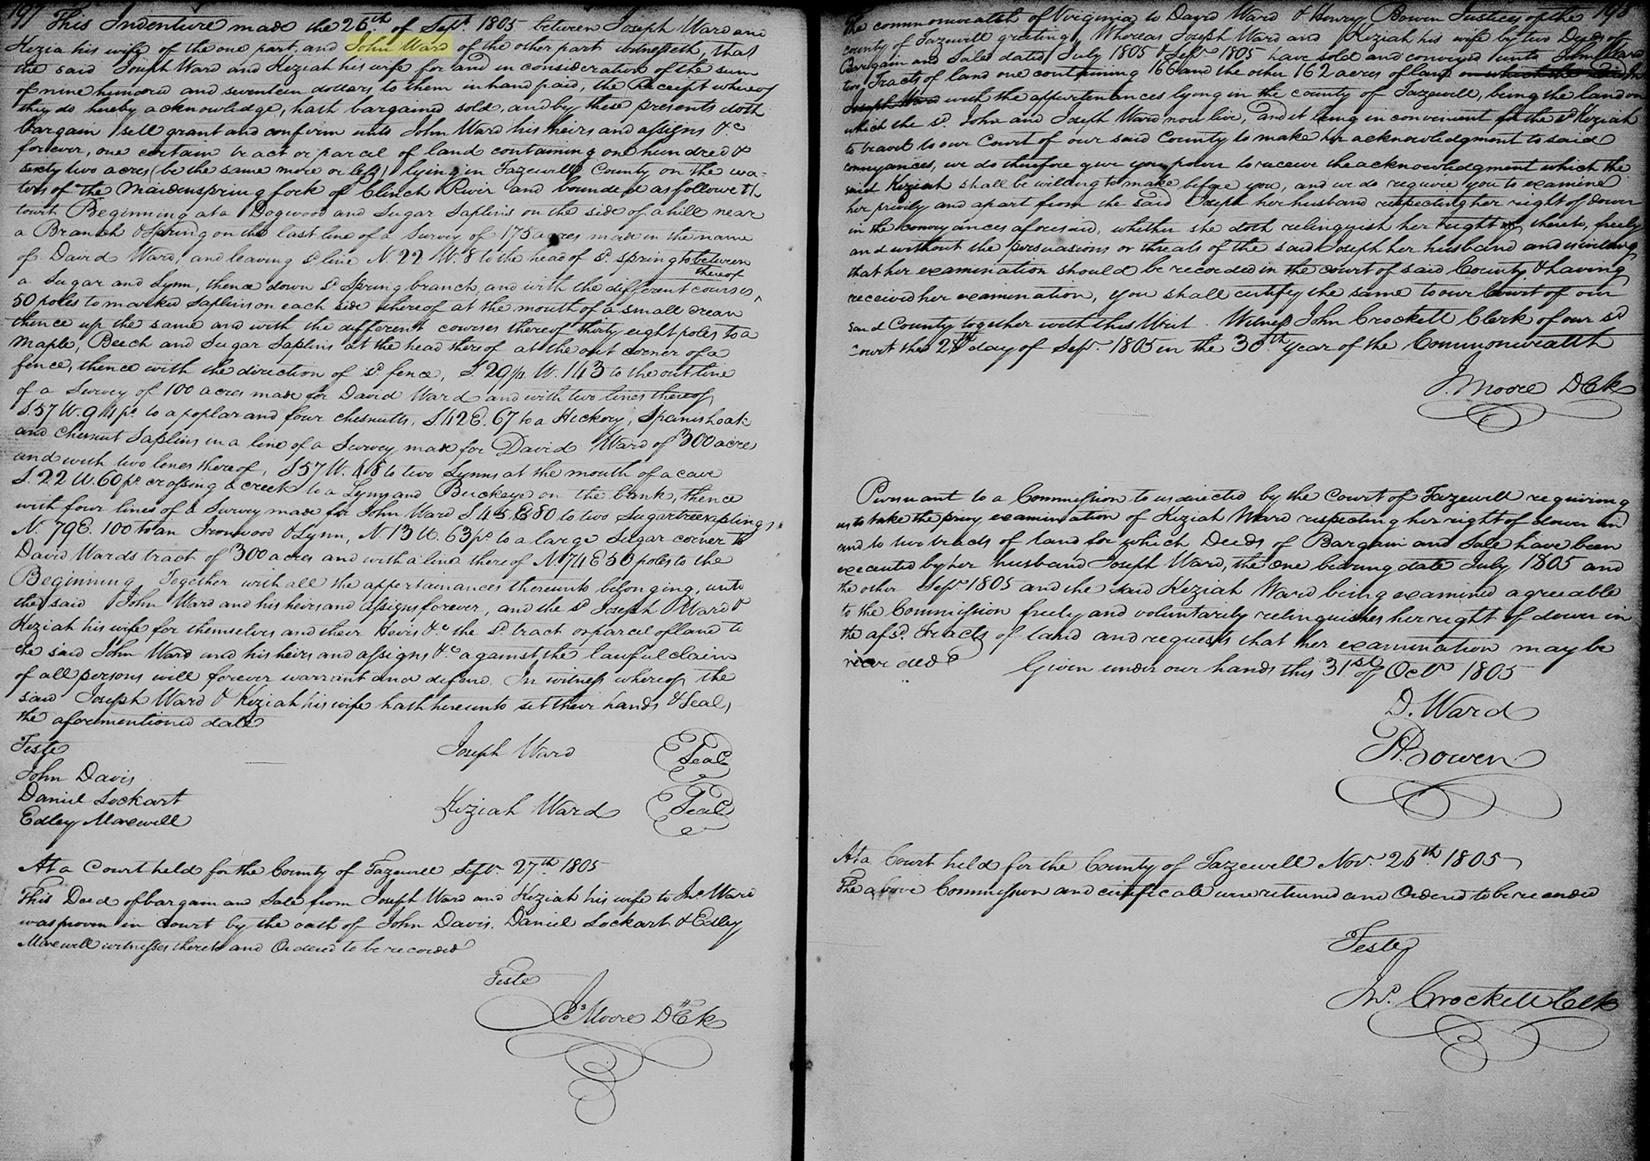 197 This Indenture made the 26th of Sept. 1805 between Joseph Ward and
Kezia his wife of the one part, and John Ward of the other part Witnesseth, that
the said Joseph Ward and Keziah his wife for and in consideration of the sum
of nine hundred and seventeen dollars to them in hand paid, the Receipt whereof
they do hereby acknowledge, hath bargained sold, and by these presents doth
bargain sell grant and confirm unto John Ward his heirs and assigns &c
forever, one certain tract or parcel of land containing one hundred &
sixty two acres (be the same more or less) lying in Tazewell County on the wa-
ters of the Maidenspring fork of Clinch River and bounded as followeth
towit Beginning at a Dogwood and Sugar Saplins on the side of a hill near
a Branch & Spring on the last line of a Survey of 175 acres made in the name
of David Ward, and leaving sd. line N. 22 W. 8 to the head of sd. spring to between
thereof
a Sugar and Lynn, thence down sd. Spring branch and with the different courses,
50 poles to marked Saplins on each side thereof at the mouth of a small drean
thence up the same and with the different courses thereof thirty eight poles to a
Maple, Beech and Sugar Saplins at the head thereof at the out corner of a
fence, thence with the direction of sd. fence, S. 29 W. 143 to the out line
of a Survey of 100 acres made for David Ward and with two lines thereof
S. 57 W. 94 ps. to a poplar and four chesnutts, S. 42 E. 67 to a Hickory, Spanish oak
and Chesnut Saplins in a line of a Survey made for David Ward of 300 acres
and with two lines thereof, S 57 W. 48 to two Lynns at the mouth of a cave
S. 22 W. 60 ps. crossing a creek to a Lynn and Buckeye on the bank, thence
with four lines of a Survey made for John Ward S 45 E 80 to two Sugartree saplings,
N. 79 E. 100 to an Ironwood & Lynn, N 13 W. 63 ps. to a large Sugar corner to
David Wards tract of 300 acres and with a line thereof N 74 E 50 poles to the
Beginning Together with all the appertainances thereunto belonging, unto
the said John Ward and his heirs and assigns forever, and the sd. Joseph Ward &
Keziah his wife for themselves and their Heirs &c the sd. tract or parcel of land to
the said John Ward and his heirs and assigns &c against the lawful claim
of all persons will forever warrant and defend. In witness whereof the
said Joseph Ward & Keziah his wife hath hereunto set their hands & Seals,
the aforementioned date
Teste
Joseph Ward Seal
John Davis
Daniel Lockart
Keziah Ward Seal
Edley Maxwell
At a Court held for the County of Tazewell Septr. 27th 1805
This Deed of bargain and Sale from Joseph Ward and Keziah his wife to Jno. Ward
was proven in Court by the oath of John Davis, Daniel Lockart & Edley
Maxwell witnesses thereto and Ordered to be recorded
Teste
Moore D Clk
The commonwealth of Virginia to David Ward & Henry Bowen Justices of the 198
county of Tazewell greeting, Whereas Joseph Ward and Keziah his wife by two Deeds of
Bargain and Sale dated July 1805 & Sept. 1805 have sold and conveyed unto John Ward
two Tracts of land one containing 166 and the other 162 acres of land on which
Joseph Ward with the appurtenances lying in the county of Tazewell, being the land on
which the sd. John and Joseph Ward now live, and it being inconvenient for the sd. Keziah
to travel to our Court of our said County to make her acknowledgment to said
conveyances, we do therefore give you power to receive the acknowledgment which the
said Keziah shall be willing to make before you, and we do require you to examine
her privily and apart from the said Joseph her husband respecting her right of dower
in the conveyances aforesaid, whether she doth relinquish her right thereto, freely
and without the persuasions or threats of the said Joseph her husband and is willing
that her examination should be recorded in the court of said County & having
received her examination, you shall certify the same to our Court of our
said County together with this Writ. Witness John Crockett Clerk of our sd.
Court this 28th day of Sept. 1805 in the 30th year of the Commonwealth
J. Moore D Clk
Pursuant to a Commission to us directed by the Court of Tazewell requiring
us to take the privy examination of Keziah Ward respecting her right of dower in
and to two tracts of land for which Deeds of Bargain and Sale have been
executed by her husband Joseph Ward, the one bearing date July 1805 and
the other Sept. 1805 and the said Keziah Ward being examined agreeable
to the Commission freely and voluntarily relinquishes her right of dower in
the afsd. Tracts of land and requests that her examination may be
recorded
Given under our hands this 31st of Octr. 1805
D. Ward
H. Bowen
At a Court held for the County of Tazewell Novr. 26th 1805
The above Commission and certificate were returned and Ordered to be recorded
Teste
Jno. Crockett Clk